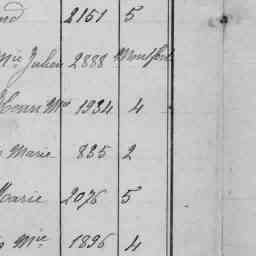 nd 2151 5
Mie Julien 2888 Montfort
Henri Mie 1934 4
Marie 835 2
Marie 2076 5
Mie 1896 4